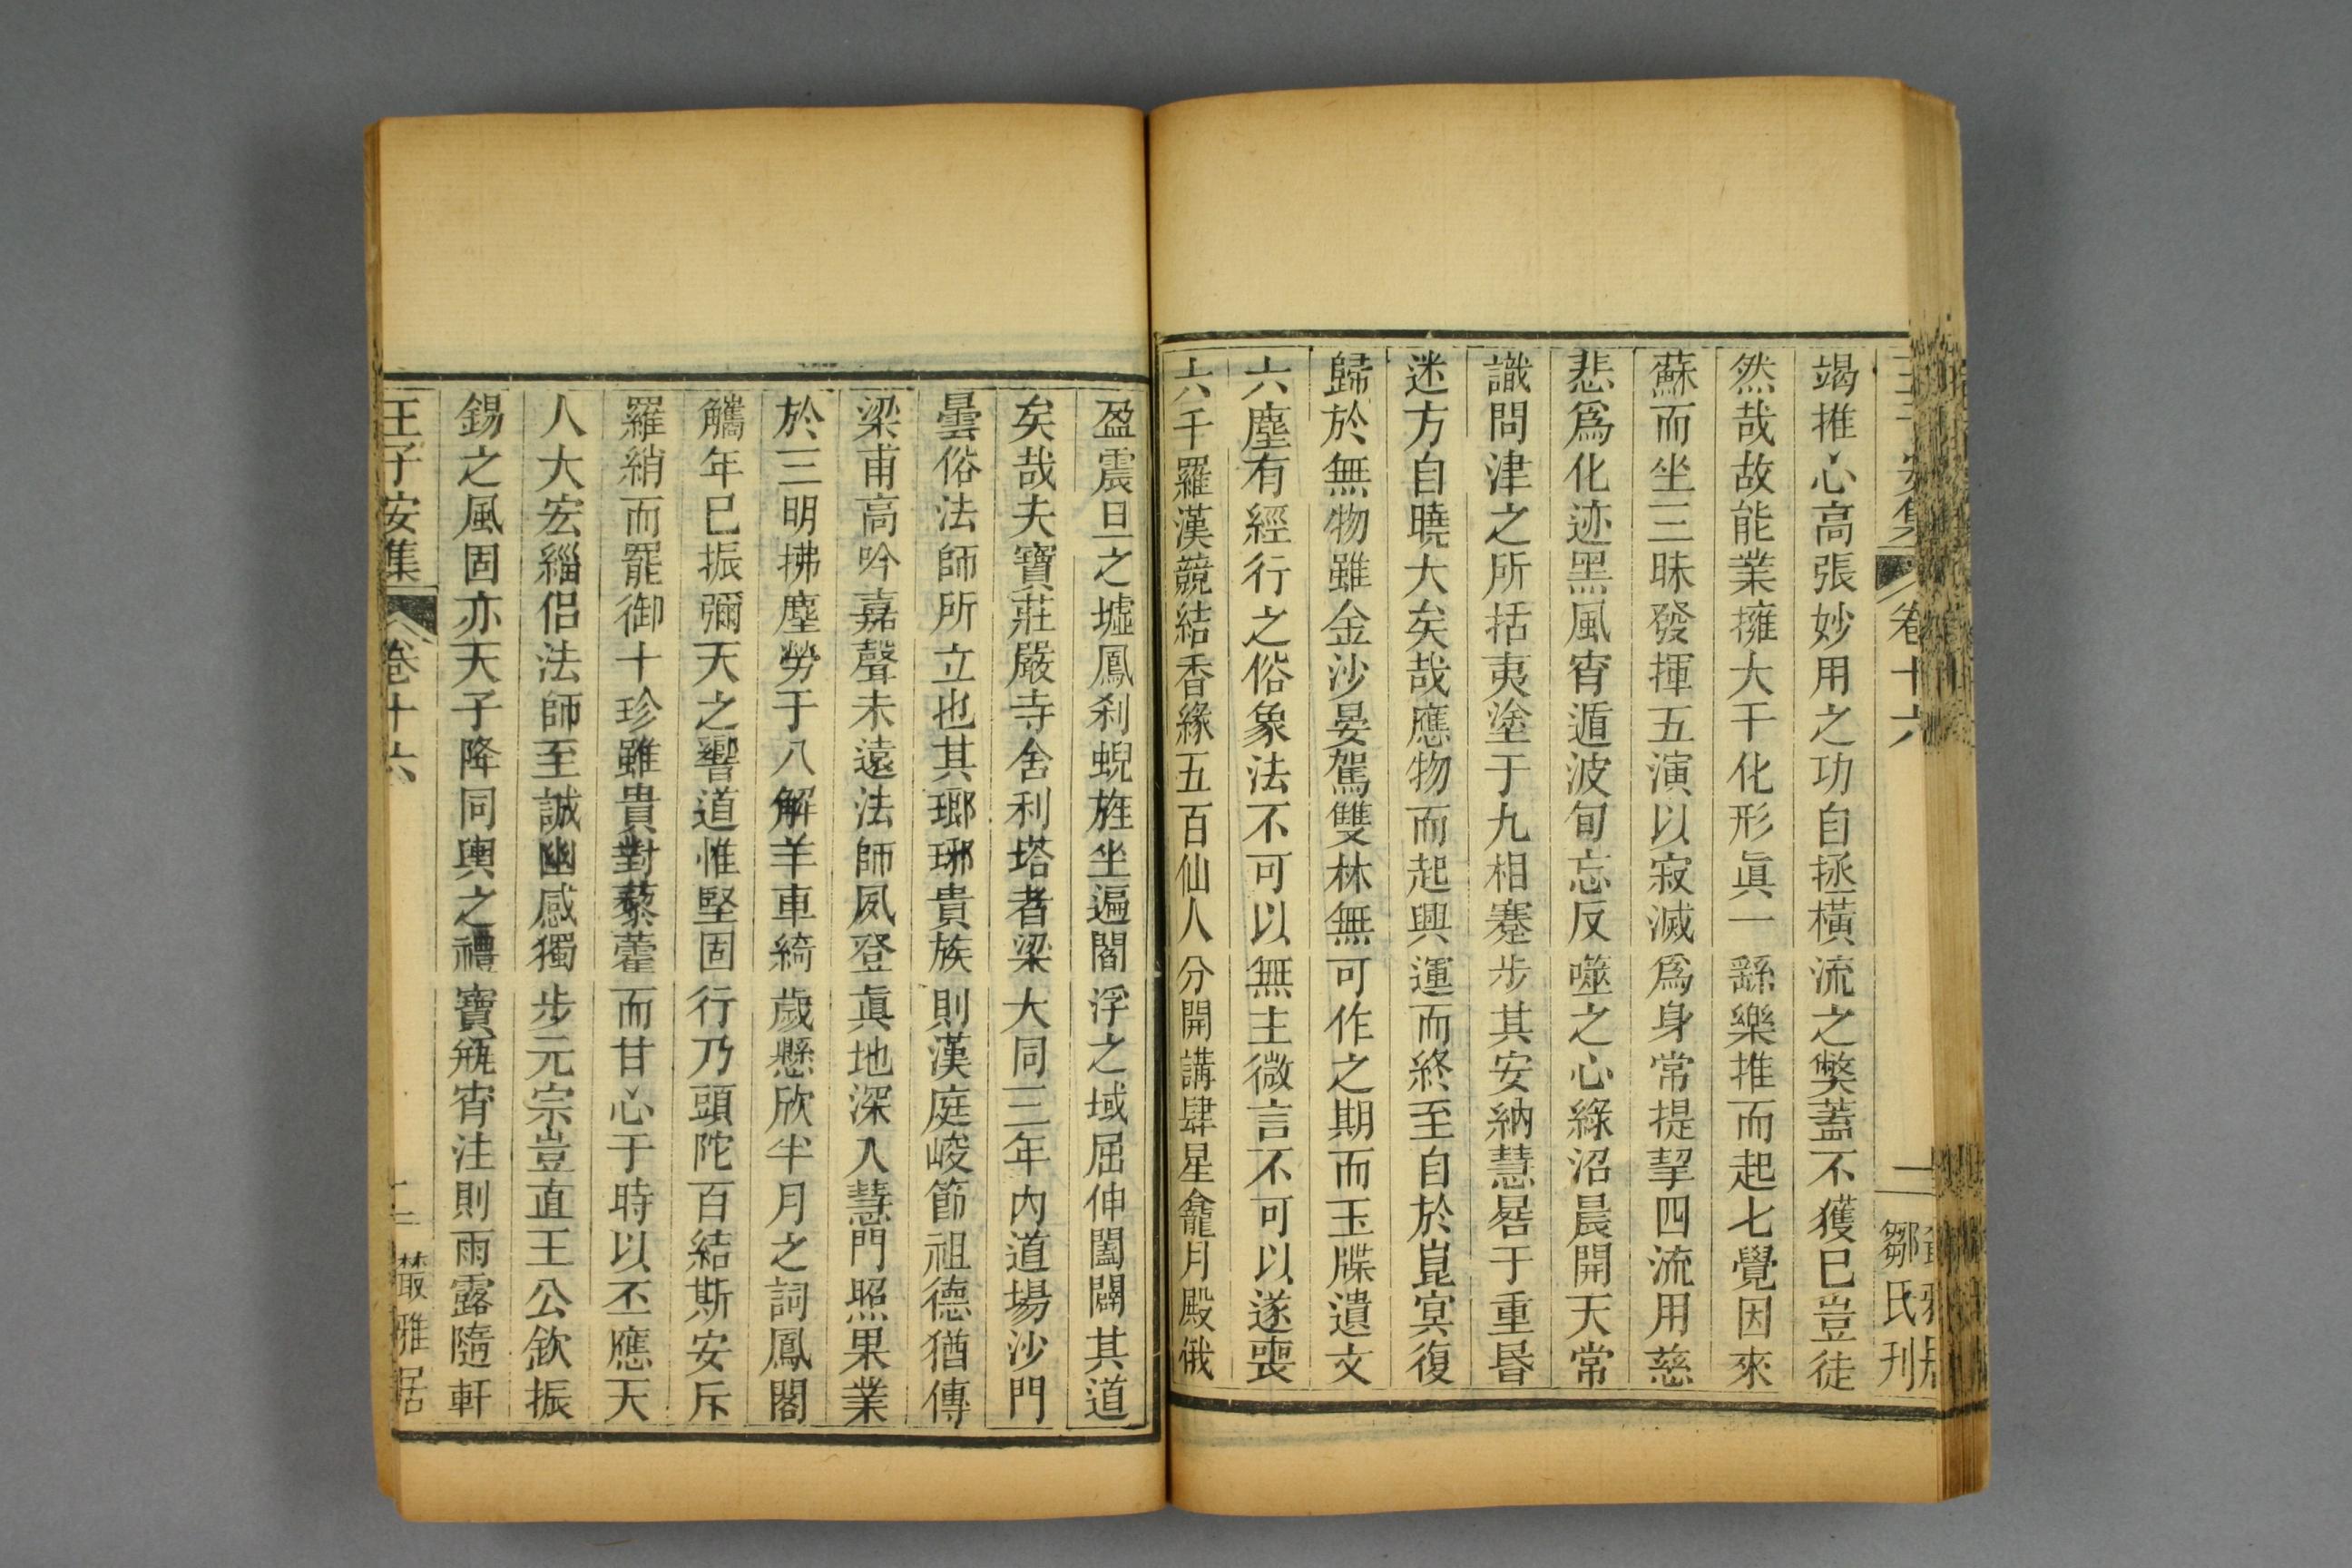 王子安集 卷十六 二 鄒氏刊
竭推心高張妙用之功自拯橫流之弊蓋不獲巳豈徒
然哉故能業擁大千化形眞一繇樂推而起七覺因來
蘇而坐三昧發揮五演以寂滅爲身常提挈四流用慈
悲爲化迹黑風宵遁波旬忘反噬之心綠沼晨開天常
識問津之所括夷塗于九相蹇步其安納慧晷于重昏
迷方自曉大矣哉應物而起興運而終至自於崑冥復
歸於無物雖金沙晏駕雙林無可作之期而玉牒遺文
六塵有經行之俗象法不可以無主微言不可以遂喪
六千羅漢競結香緣五百仙人分開講肆星龕月殿俄
盈震旦之墟鳳刹蜺旌坐遍閻浮之域屈伸闔闢其道
矣哉夫寶莊嚴寺舍利塔者梁大同三年內道場沙門
曇俗法師所立也其瑯琊貴族則漢庭峻節祖德猶傳
梁甫高吟嘉聲未遠法師夙登眞地深入慧門照果業
於三明拂塵勞于八解羊車綺歲懸欣半月之詞鳳閣
觿年巳振彌天之響道惟堅固行乃頭陀百結斯安斥
羅綃而罷御十珍雖貴對藜藿而甘心于時以丕應天
人大宏緇侶法師至誠幽感獨步元宗豈直王公欽振
錫之風固亦天子降同輿之禮寶瓶宵注則雨露隨軒
王子安集 卷十六 叢雅居